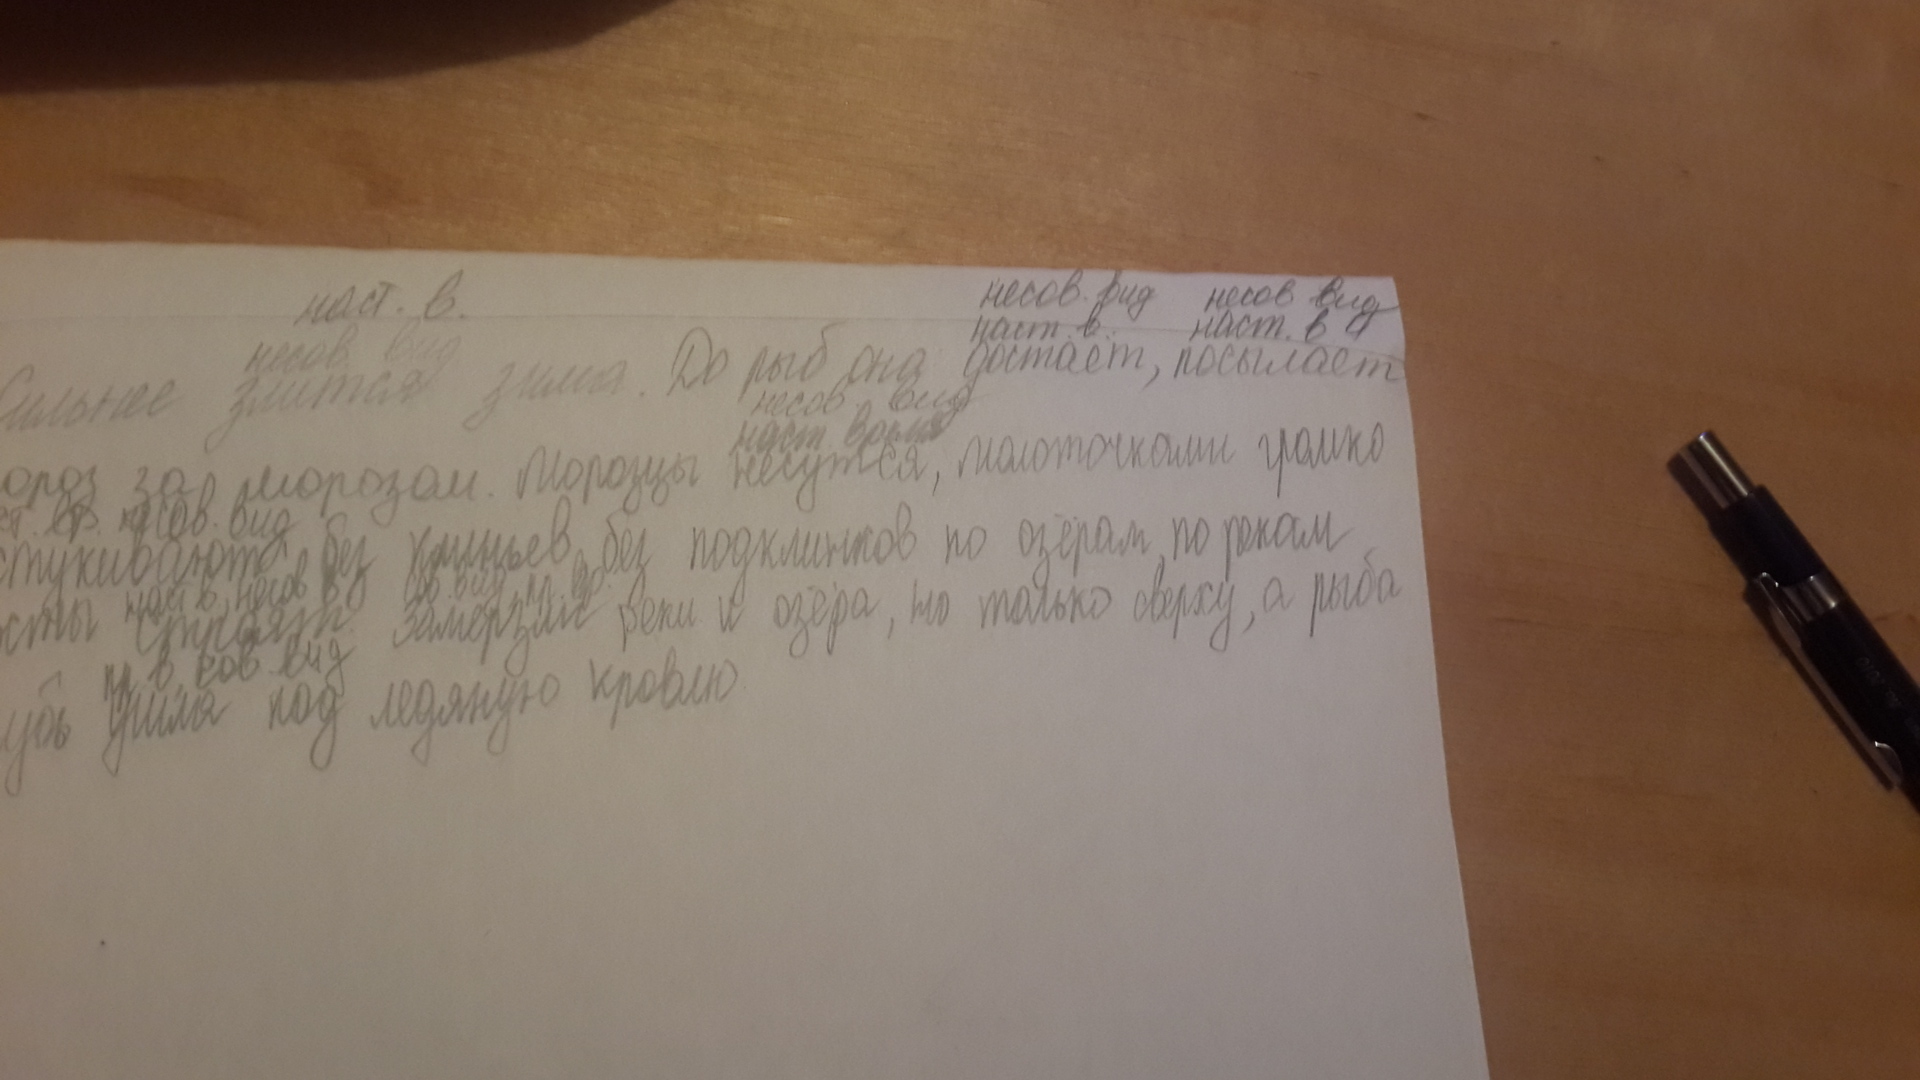 наст. в. несов. вид несов вид
несов. вид наст. в. наст. в
Сильнее злится зима. До рыб она достаёт, посылает
несов. вид
наст. время
ороз за морозом. Морозцы несутся, молоточками громко
ст. вр. несов. вид
стукивают без клиньев, без подклинков по озёрам, по рекам
наст в. несов в сов. вид, пр. вр.
осты строят. Замёрзли реки и озёра, но только сверху, а рыба
пр в. сов. вид
лубь ушла под ледяную кровлю